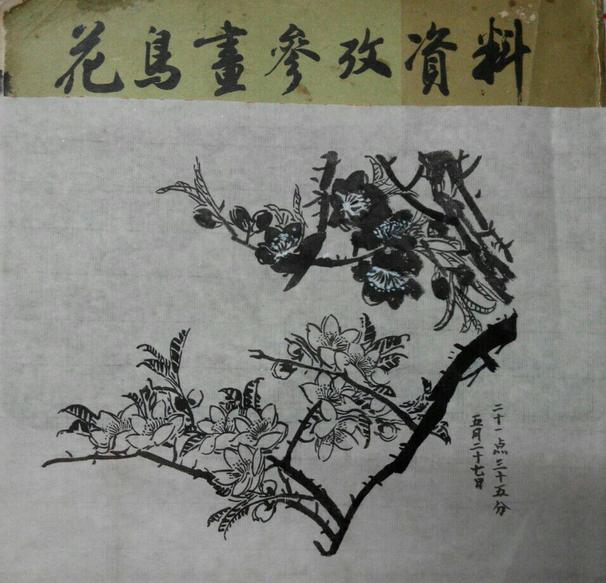 花鸟畫參攷资料
二十一点三十五分
五月二十七日